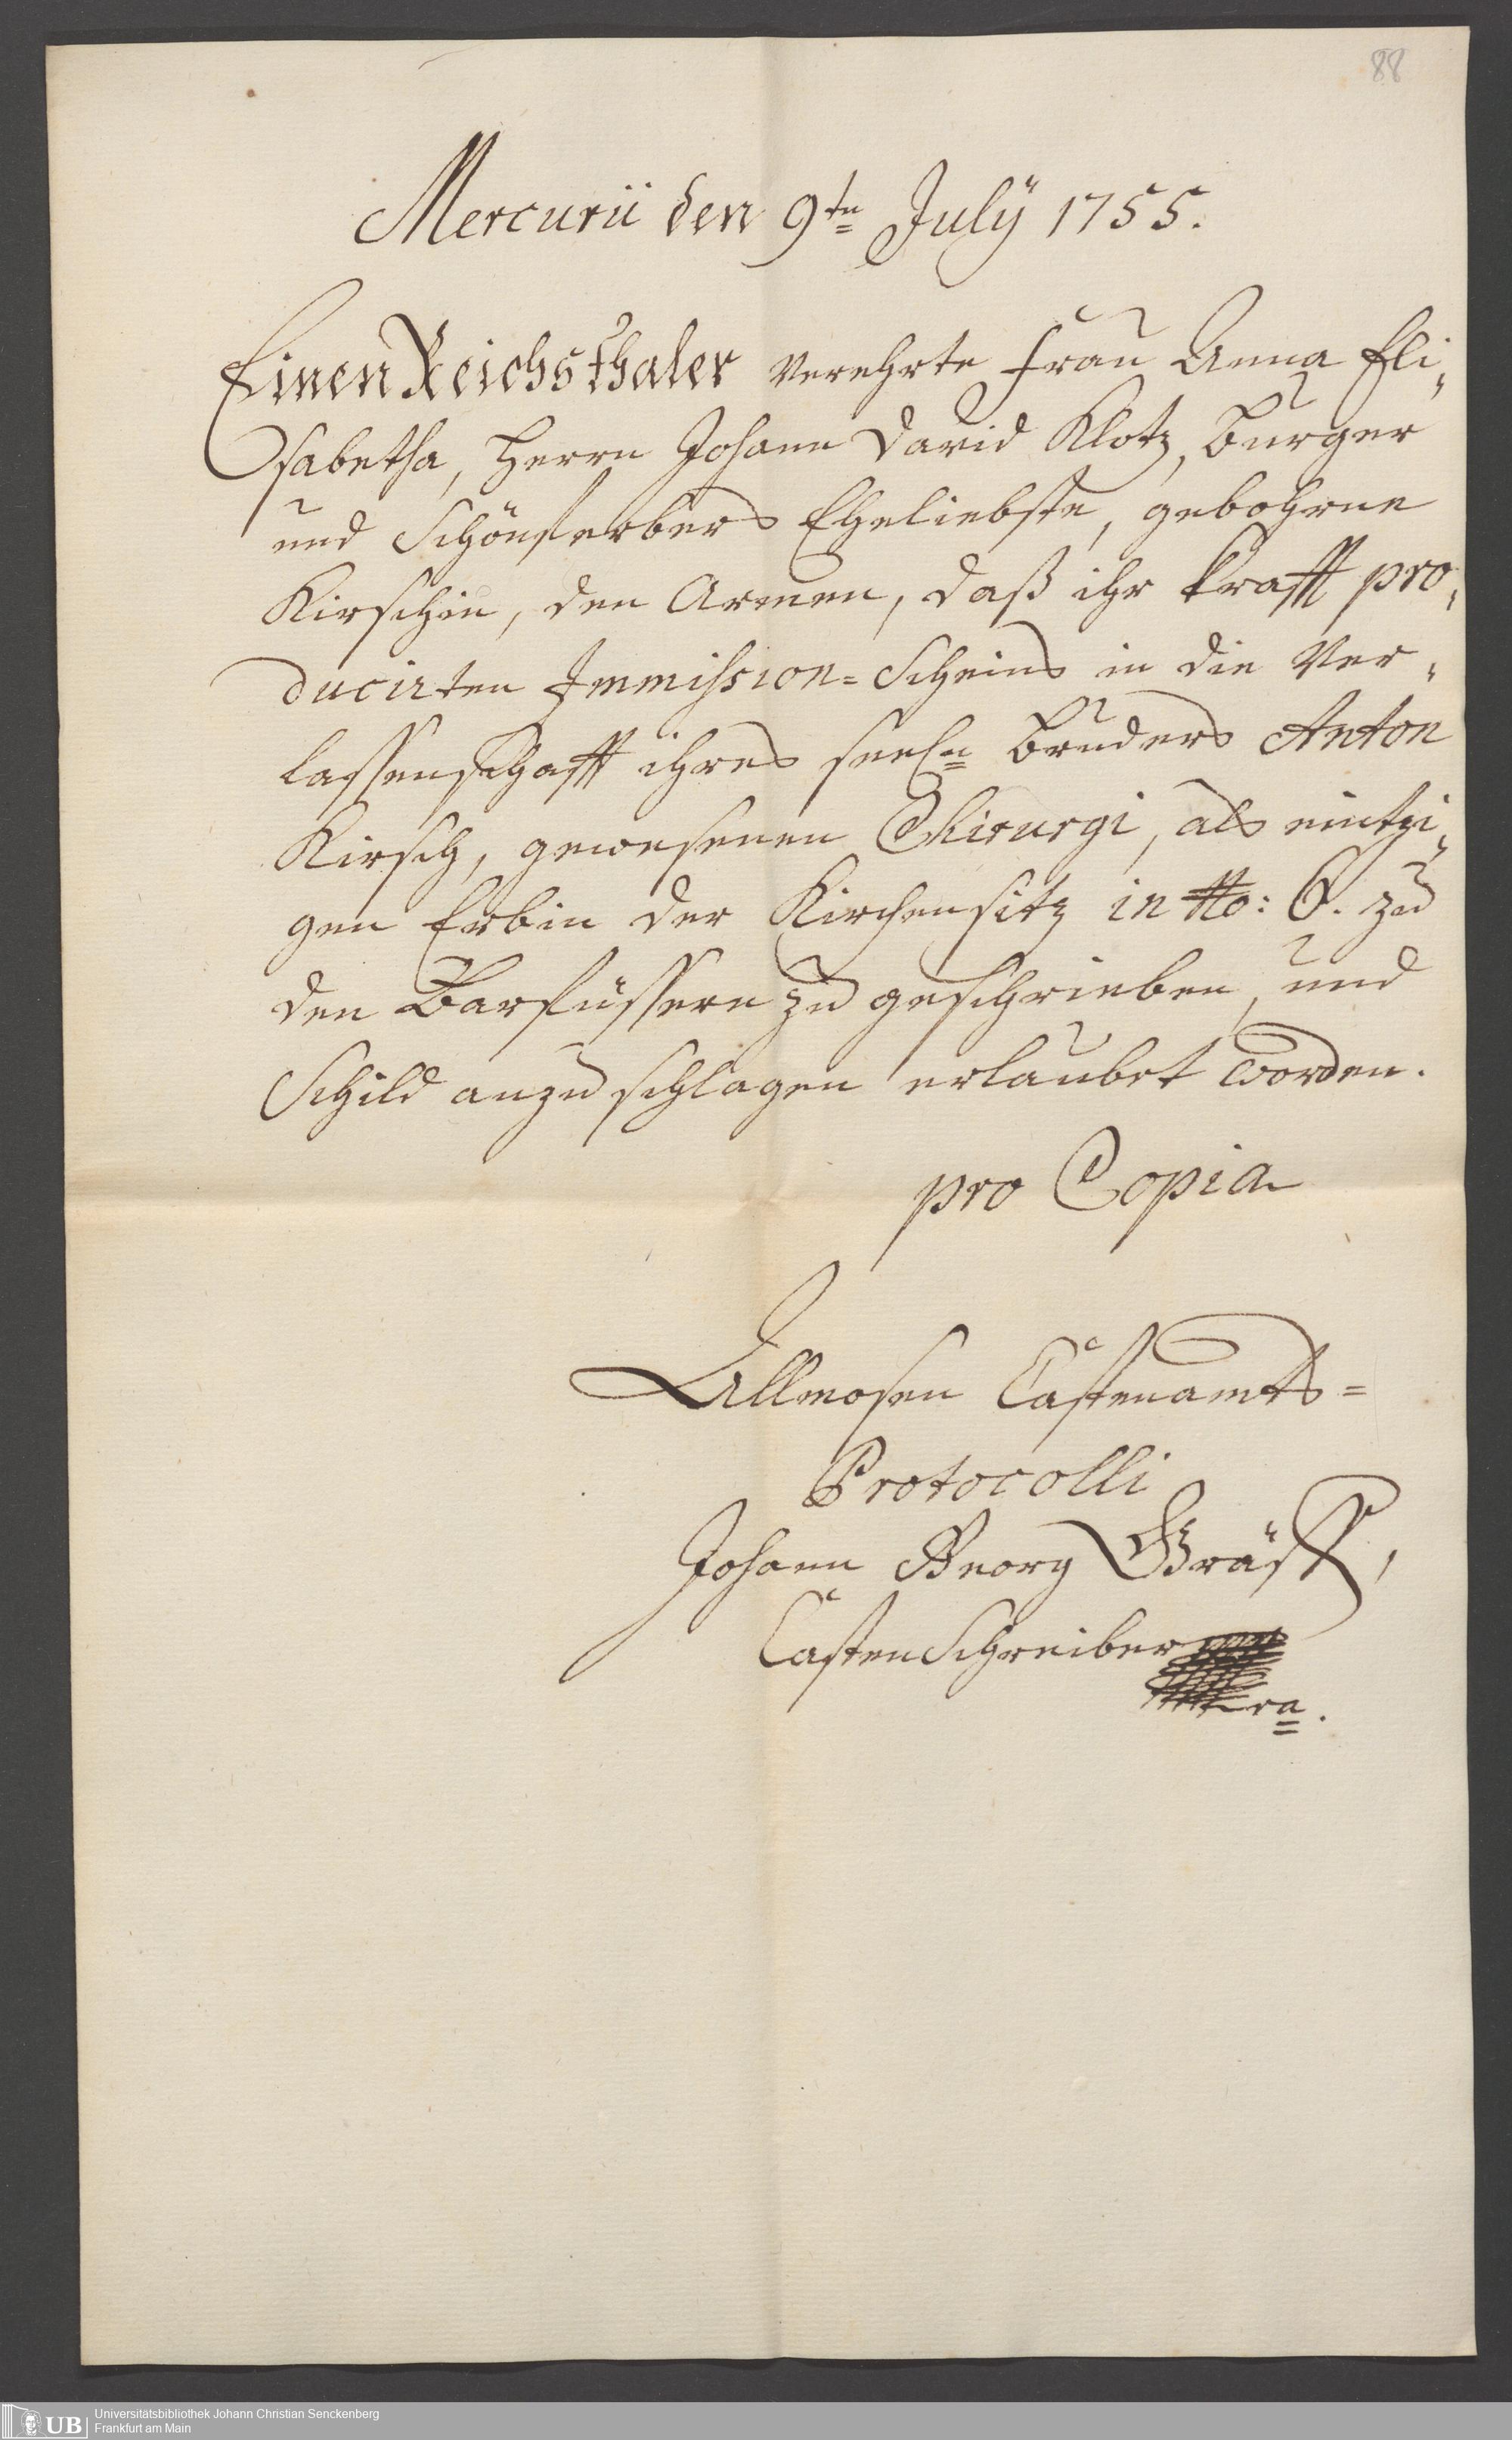 88
Mercurii den 9ten July 1755.
Einen Reichsthaler verehrte Frau Anna Eli„
sabetha, Herrn Johann David Klotz, Burger
und Schönferbers Eheliebste, gebohrne
Kirschin, den Armen, daß ihr krafft pro„
ducirten Immission=Scheins in die Ver„
lassenschafft ihres seeln Bruders Anton
Kirsch, gewesenen Chirurgi, als eintzi„
gen Erbin der Kirchensitz in No: 6. zu
den Barfüssern zu geschrieben, und
Schild anzuschlagen erlaubet worden.
pro Copia
Allmosen Castenamts=
Protocolli
Johann Georg Gräff,
Casten Schreiber
Universitätsbibliothek Johann Christian Senckenberg
Frankfurt am Main
UB